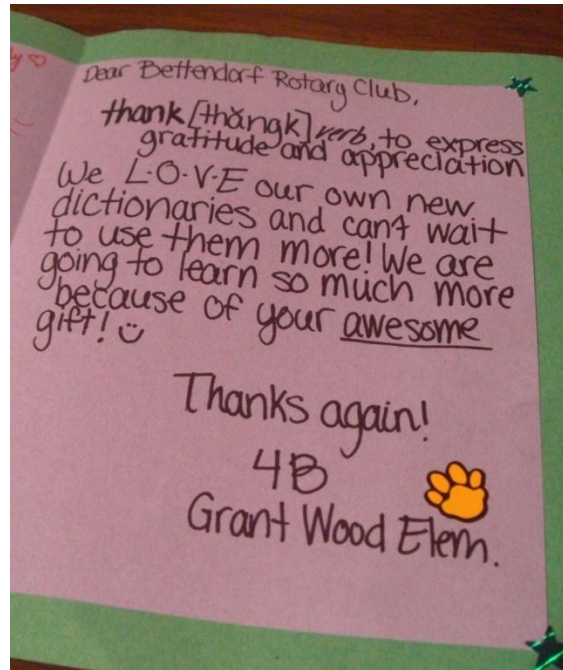 Dear Bettendorf Rotary Club,
thank [thăngk] verb, to express
gratitude and appreciation
We L·O·V·E our own new
dictionaries and can't wait
to use them more! We are
going to learn so much more
because of your awesome
gift! ☺
Thanks again!
4B
Grant Wood Elem.